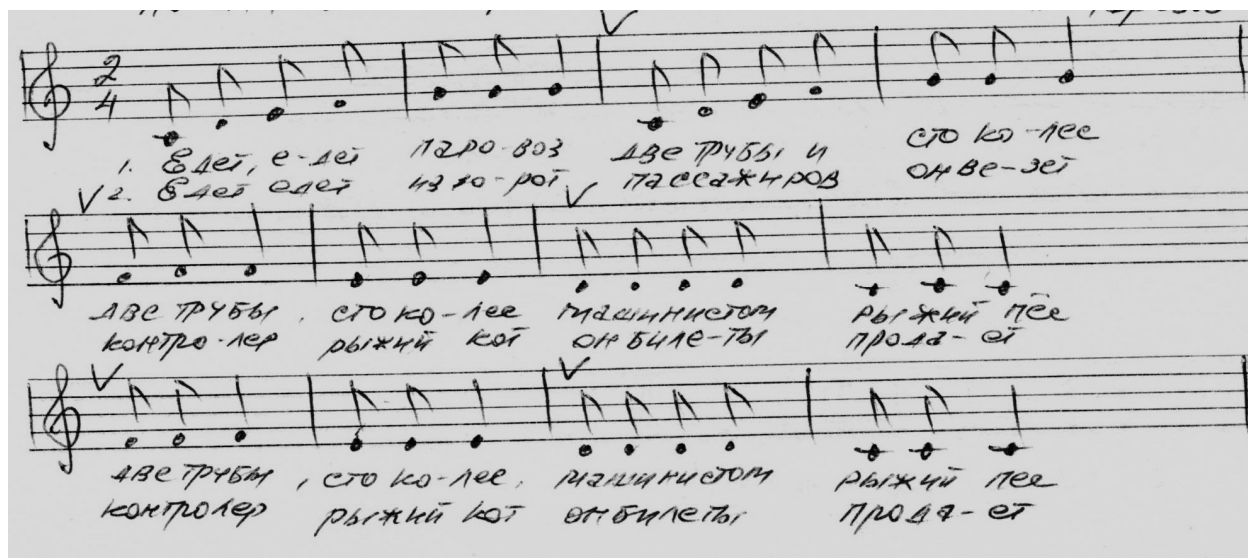 2
4
1. Едет, е-дет паро-воз две трубы и сто ко-лес
2. Едет едет из во-рот пассажиров он ве-зет
две трубы, сто ко-лес машинистом рыжий пёс
контро-лер рыжий кот он биле-ты прода-ет
две трубы, сто ко-лес, машинистом рыжий пес
контролер рыжий кот он билеты прода-ет